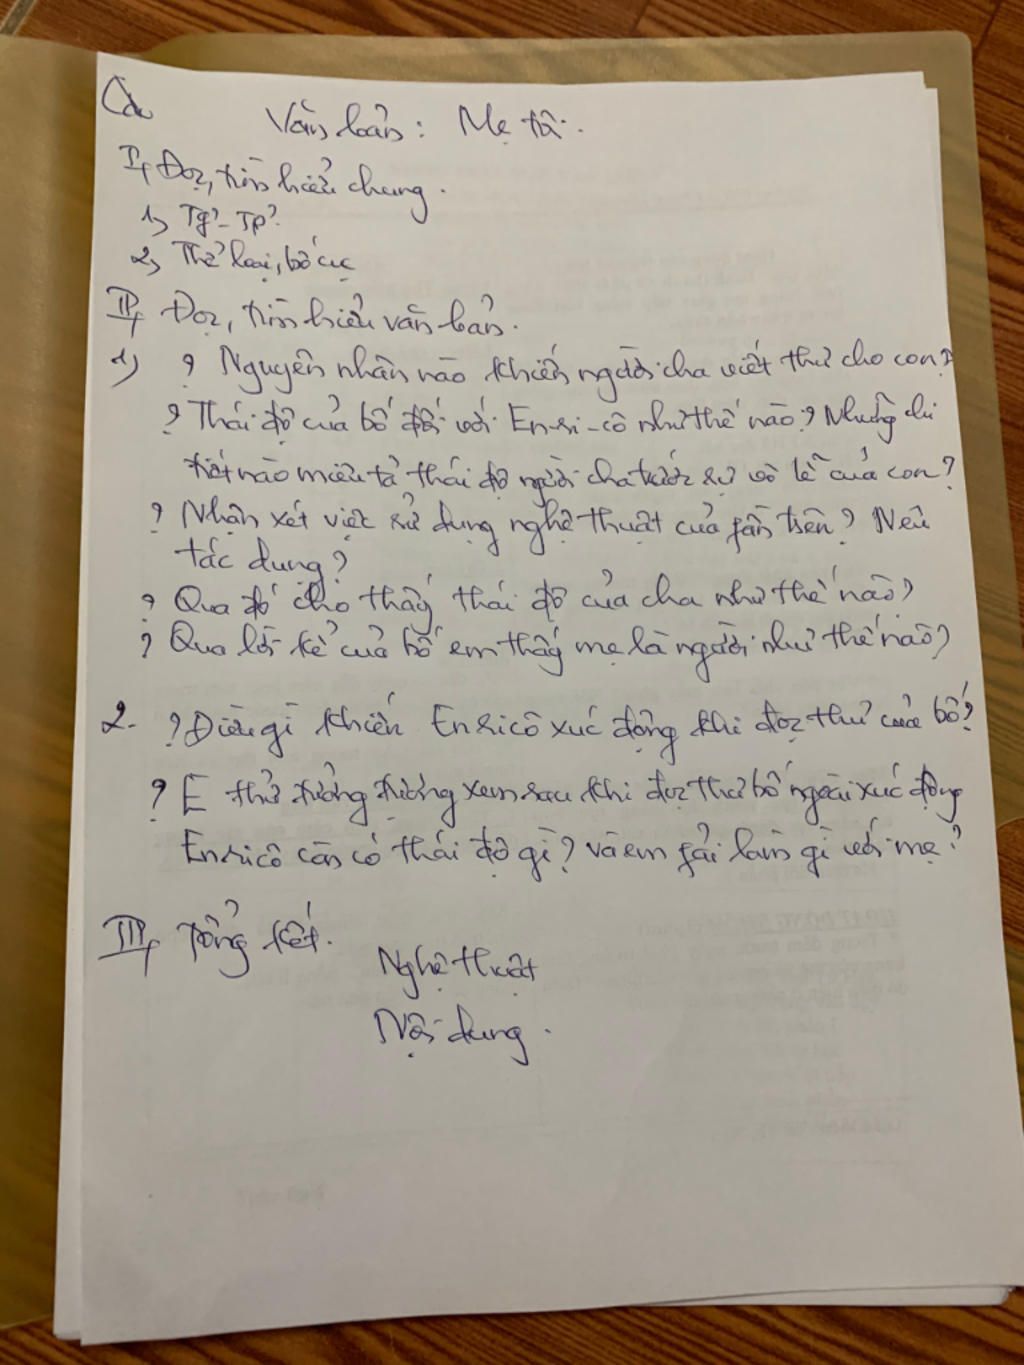 Văn bản: Mẹ tôi.
I, Đọc, tìm hiểu chung.
1, Tg? - Tp?
2, Thể loại, bố cục
II, Đọc, tìm hiểu văn bản.
1) ? Nguyên nhân nào khiến người cha viết thư cho con?
? Thái độ của bố đối với En-ri-cô như thế nào? Những chi
tiết nào miêu tả thái độ người cha trước sự vô lễ của con?
? Nhận xét việc sử dụng nghệ thuật của fần trên? Nêu
tác dụng?
? Qua đó cho thấy thái độ của cha như thế nào?
? Qua lời kể của bố em thấy mẹ là người như thế nào?
2. ? Điều gì khiến Enricô xúc động khi đọc thư của bố?
? E thử tưởng tượng xem sau khi đọc thư bố ngoài xúc động
Enricô còn có thái độ gì? và em fải làm gì với mẹ?
III, Tổng kết.
Nghệ thuật
Nội dung.